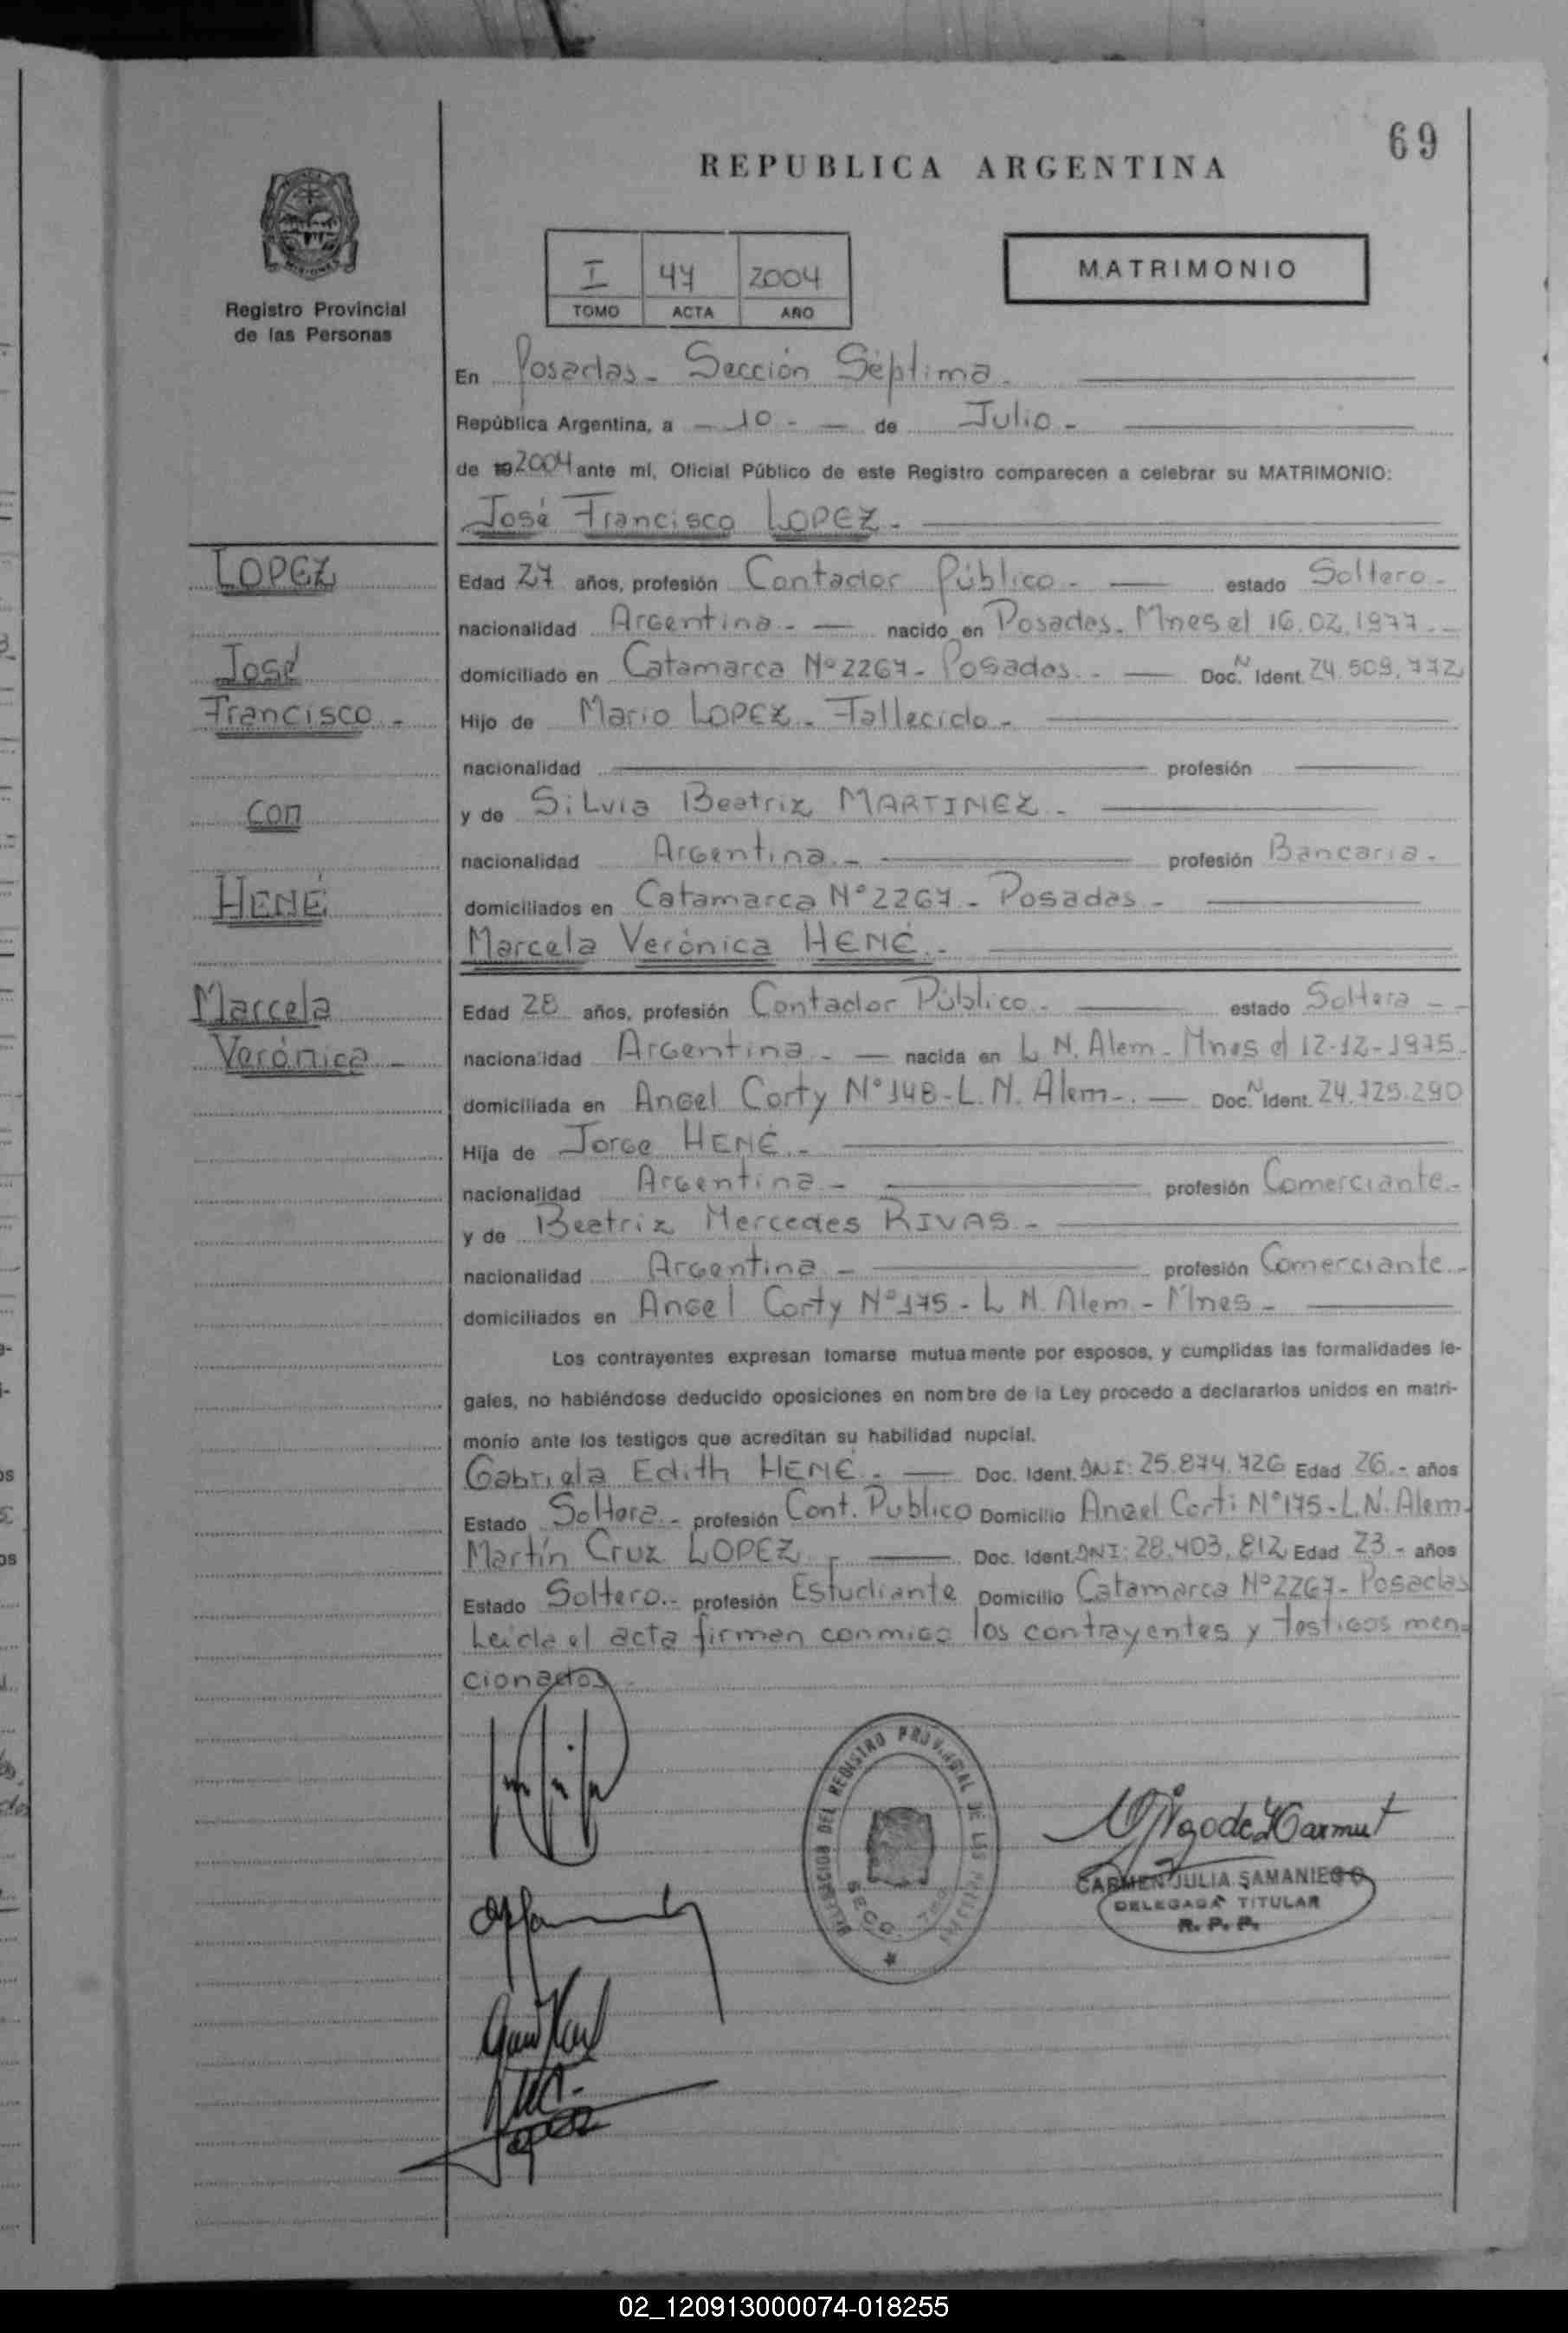 69
REPUBLICA ARGENTINA
Registro Provincial
de las Personas
I 47 2004
TOMO ACTA AÑO
MATRIMONIO
En Posadas - Sección Séptima.
República Argentina, a - 10 - de Julio -
de 192004 ante mí, Oficial Público de este Registro comparecen a celebrar su MATRIMONIO:
José Francisco LOPEZ -
LOPEZ
José
Francisco -
con
HENÉ
Marcela
Verónica -
Edad 27 años, profesión Contador Público - estado Soltero -
nacionalidad Argentina - nacido en Posadas - Mnes el 16.02.1977 -
domiciliado en Catamarca Nº 2267 - Posadas - Doc. N Ident. 24.509.772
Hijo de Mario LOPEZ - Fallecido -
nacionalidad profesión
y de Silvia Beatriz MARTINEZ -
nacionalidad Argentina - profesión Bancaria -
domiciliados en Catamarca Nº 2267 - Posadas -
Marcela Verónica HENÉ -
Edad 28 años, profesión Contador Público - estado Soltera -
nacionalidad Argentina - nacida en L. N. Alem - Mnes el 12-12-1975 -
domiciliada en Angel Corty Nº 148 - L. N. Alem - Doc. N Ident. 24.725.290
Hija de Jorge HENÉ -
nacionalidad Argentina - profesión Comerciante -
y de Beatriz Mercedes RIVAS -
nacionalidad Argentina - profesión Comerciante -
domiciliados en Angel Corty Nº 175 - L. N. Alem - Mnes -
Los contrayentes expresan tomarse mutuamente por esposos, y cumplidas las formalidades le-
gales, no habiéndose deducido oposiciones en nombre de la Ley procedo a declararlos unidos en matri-
monio ante los testigos que acreditan su habilidad nupcial.
Gabriela Edith HENÉ - Doc. Ident. DNI: 25.874.726 Edad 26 - años
Estado Soltera - profesión Cont. Publico Domicilio Angel Corti Nº 175 - L.N. Alem -
Martín Cruz LOPEZ - Doc. Ident. DNI: 28.403.812 Edad 23 - años
Estado Soltero - profesión Estudiante Domicilio Catamarca Nº 2267 - Posadas
Leida el acta firman conmigo los contrayentes y testigos men-
cionados -
DELEGACION DEL REGISTRO PROVINCIAL DE LAS PERSONAS
SECC.
CARMEN JULIA SAMANIEGO
DELEGADA TITULAR
R. P. P.
02_120913000074-018255